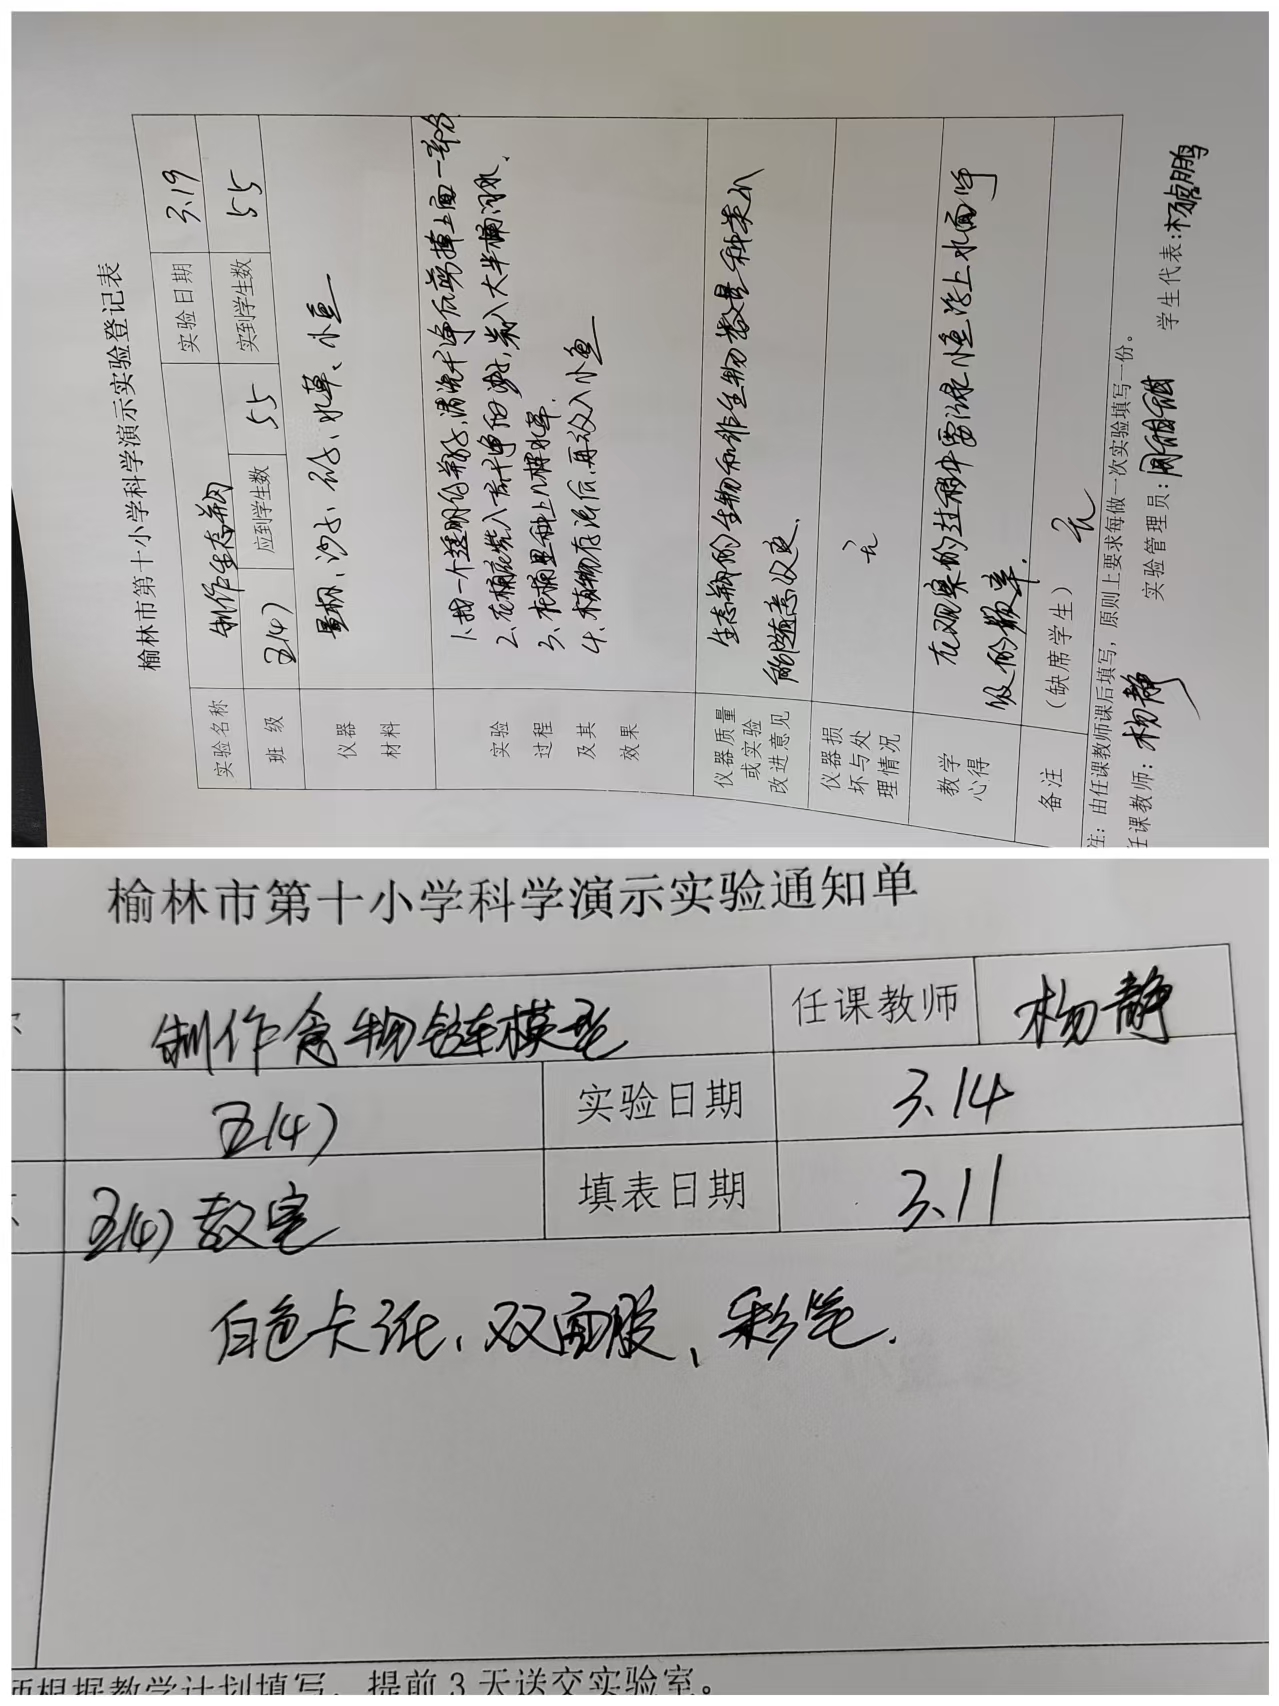 榆林市第十小学科学演示实验登记表
实验名称 制作生态瓶 实验日期 3.19
班级 五(4) 应到学生数 55 实到学生数 55
仪器材料 量杯、沙子、石子、水草、小鱼
实验过程及其效果
1、找一个透明的瓶子,清洗干净后剪掉上面一部分
2、在桶底装入洗干净的沙子,装入大半桶河水、
3、在桶里种上几棵水草.
4、植物存活后,再放入小鱼
仪器质量或实验改进意见
生态瓶的生物和非生物数量种类不
能随意改变.
仪器损坏与处理情况 无
教学心得
在观察的过程中需记录小鱼浮上水面呼
吸的频率.
备注 (缺席学生) 无
注:由任课教师课后填写,原则上要求每做一次实验填写一份。
任课教师:杨静 实验管理员: 学生代表:
榆林市第十小学科学演示实验通知单
制作食物链模型 任课教师 杨静
五(4) 实验日期 3.14
五(4)教室 填表日期 3.11
白色卡纸、双面胶、彩笔.
师根据教学计划填写,提前3天送交实验室。